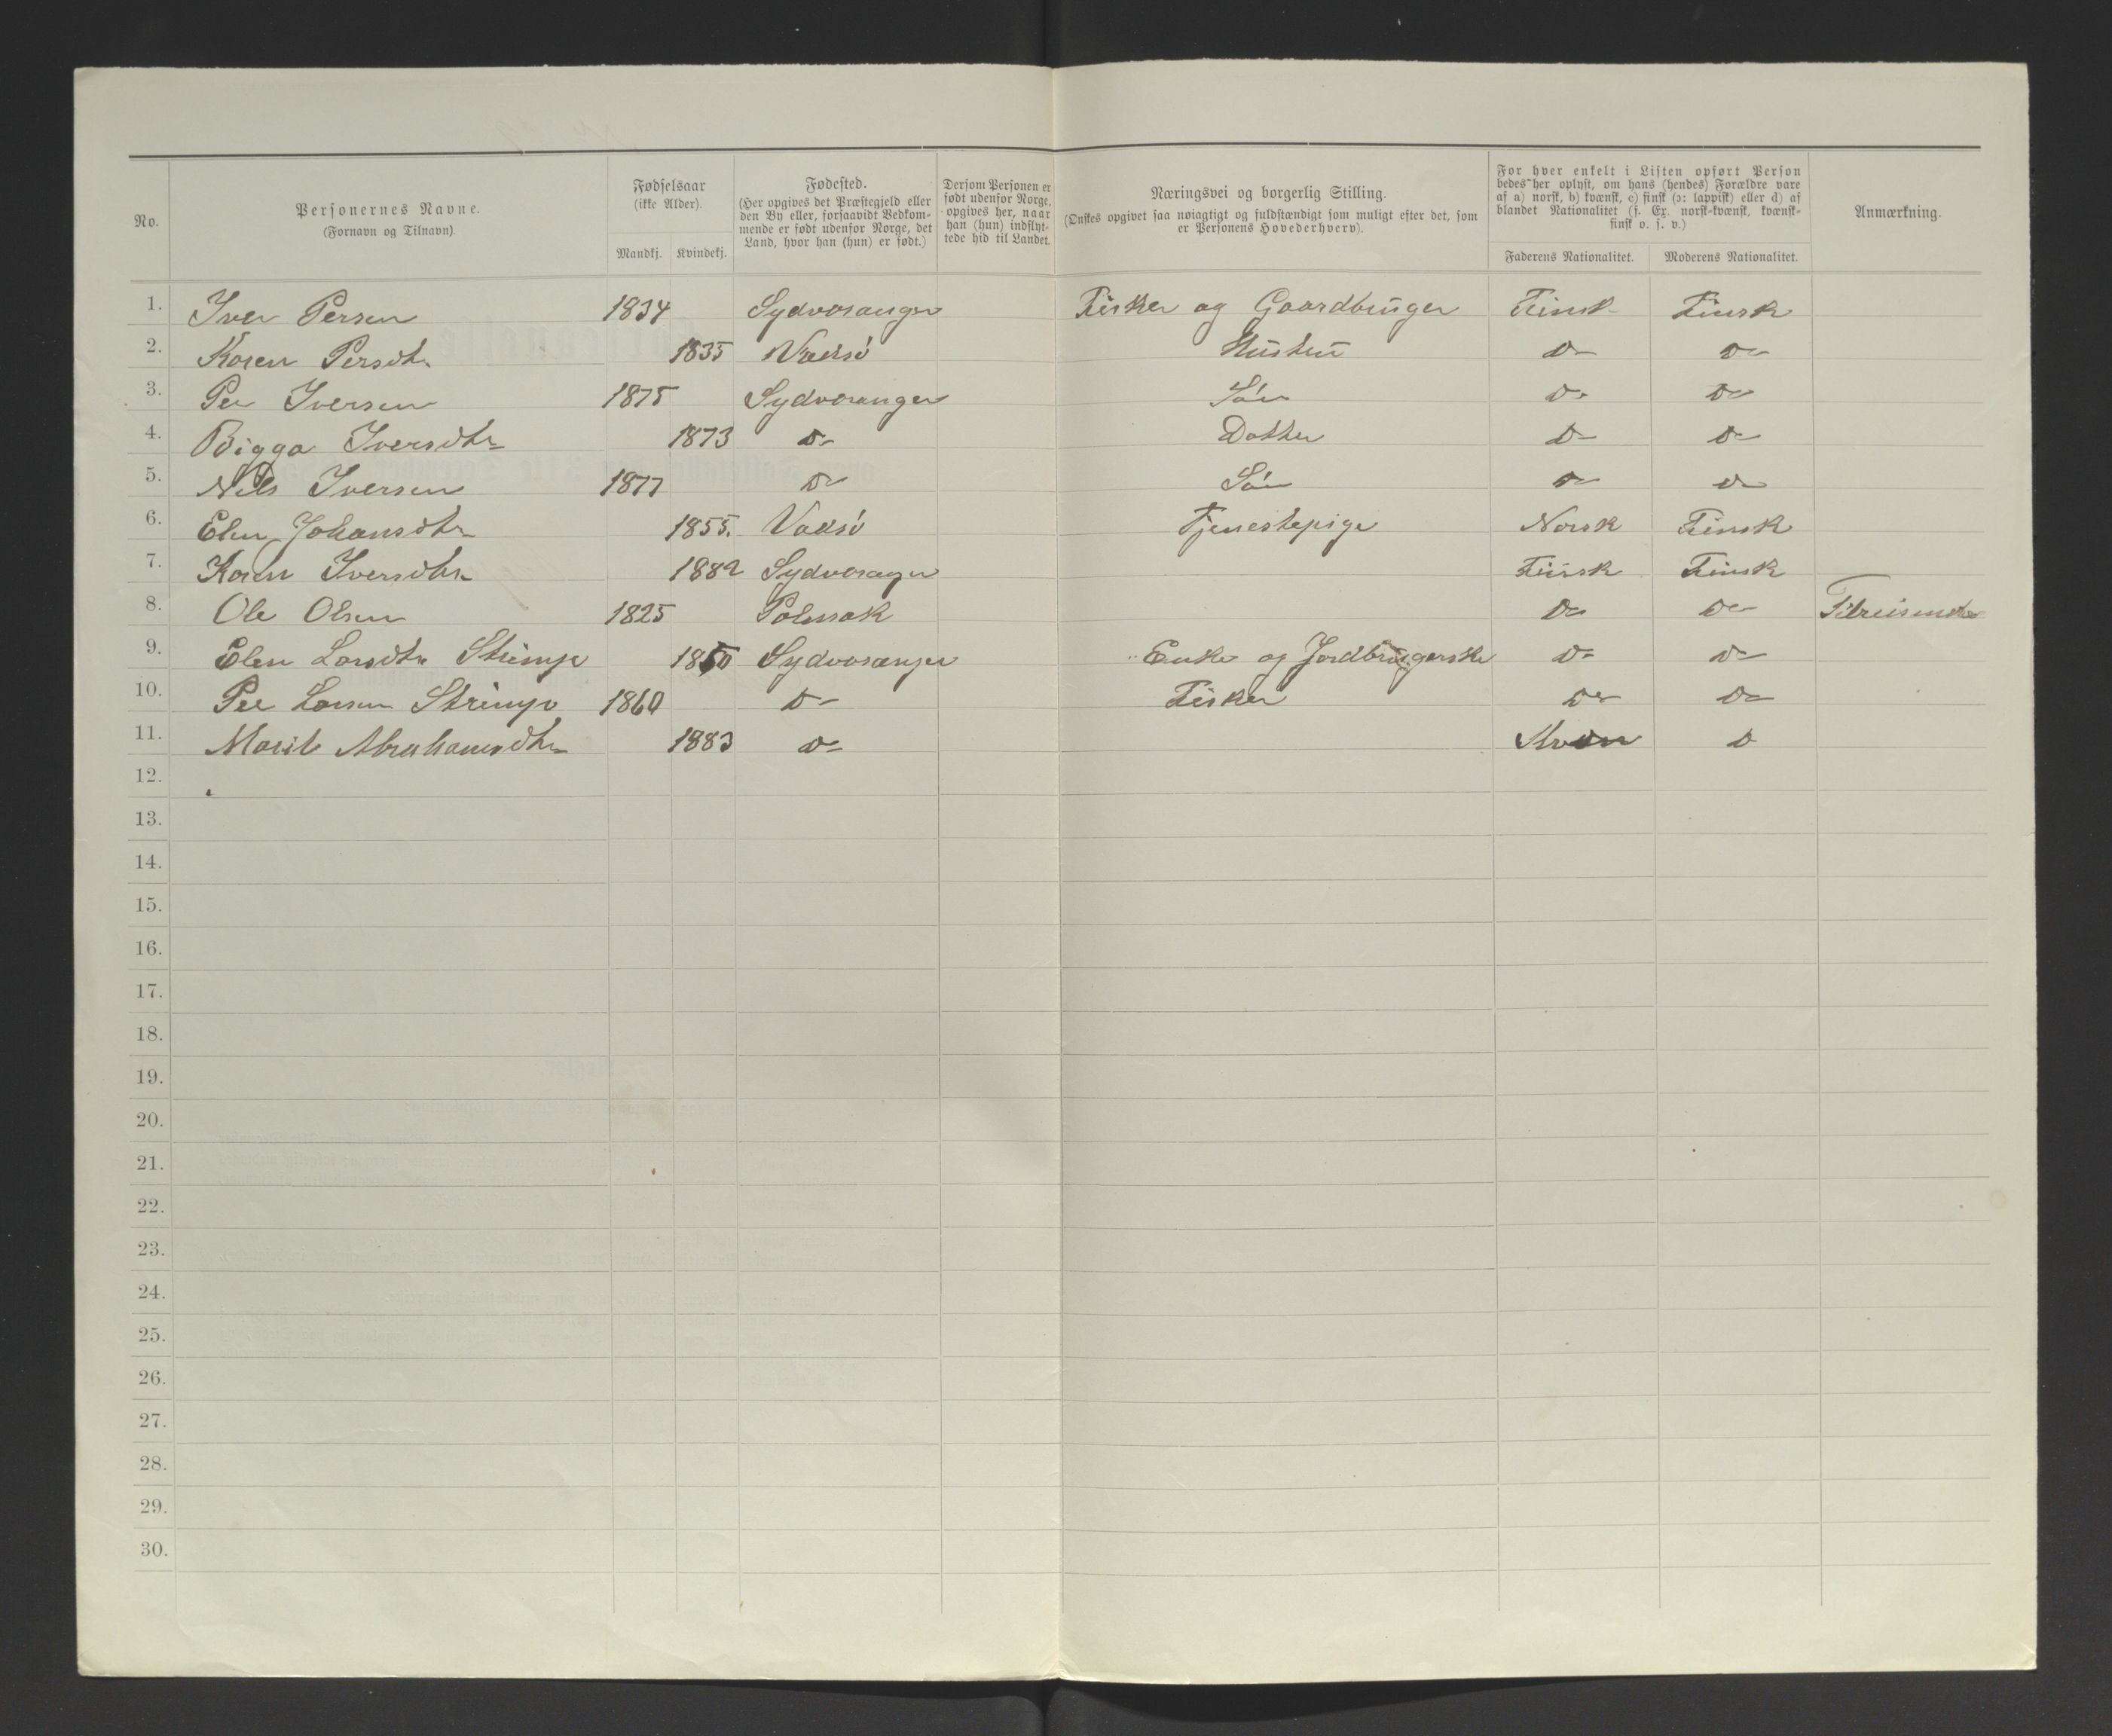 No.
Personernes Navne.
(Fornavn og Tilnavn).
Fødselsaar
(ikke Alder).
Mandkj. Kvindekj.
Fødested.
(Her opgives det Præstegjeld eller
den By eller, forsaavidt Vedkom-
mende er født udenfor Norge, det
Land, hvor han (hun) er født.)
Dersom Personen er
født udenfor Norge,
opgives her, naar
han (hun) indflyt-
tede hid til Landet.
Næringsvei og borgerlig Stilling.
(Ønskes opgivet saa nøiagtigt og fuldstændigt som muligt efter det, som
er Personens Hovederhverv).
For hver enkelt i Listen opført Person
bedes her oplyst, om hans (hendes) Forældre vare
af a) norsk, b) kvænsk, c) finsk (ɔ: lappisk) eller d) af
blandet Nationalitet (f. Ex. norsk-kvænsk, kvænsk-
finsk o. s. v.)
Faderens Nationalitet. Moderens Nationalitet.
Anmærkning.
1. Iver Persen 1834 Sydvaranger Fisker og Gaardbruger Finsk Finsk
2. Karen Persdtr. 1835 Vadsö Hustru D- D-
3. Per Iversen 1875 Sydvaranger Sön D- D-
4. Bigga Iversdtr 1873 D- Datter D- D-
5. Nils Iversen 1877 D- Sön D- D-
6. Elen Johansdtr 1855. Vadsö Tjenestepige Norsk Finsk
7. Karen Iversdtr 1882 Sydvaranger Finsk Finsk
8. Ole Olsen 1825 Polmak D- D- Tilreisende
9. Elen Larsdtr Strimp 1850 Sydvaranger Enke og Jordbrugerske D- D-
10. Per Larsen Strimp 1860 D- Fisker D- D-
11. Marit Abrahamsdtr 1883 D- Kvæn D
12.
13.
14.
15.
16.
17.
18.
19.
20.
21.
22.
23.
24.
25.
26.
27.
28.
29.
30.